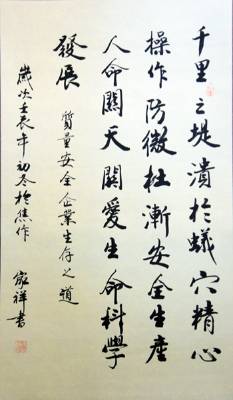 千里之堤潰於蟻穴精心
操作防微杜漸安全生產
人命關天關愛生命科學
發展
質量安全企業生存之道
歲次壬辰年初冬於焦作
家祥書